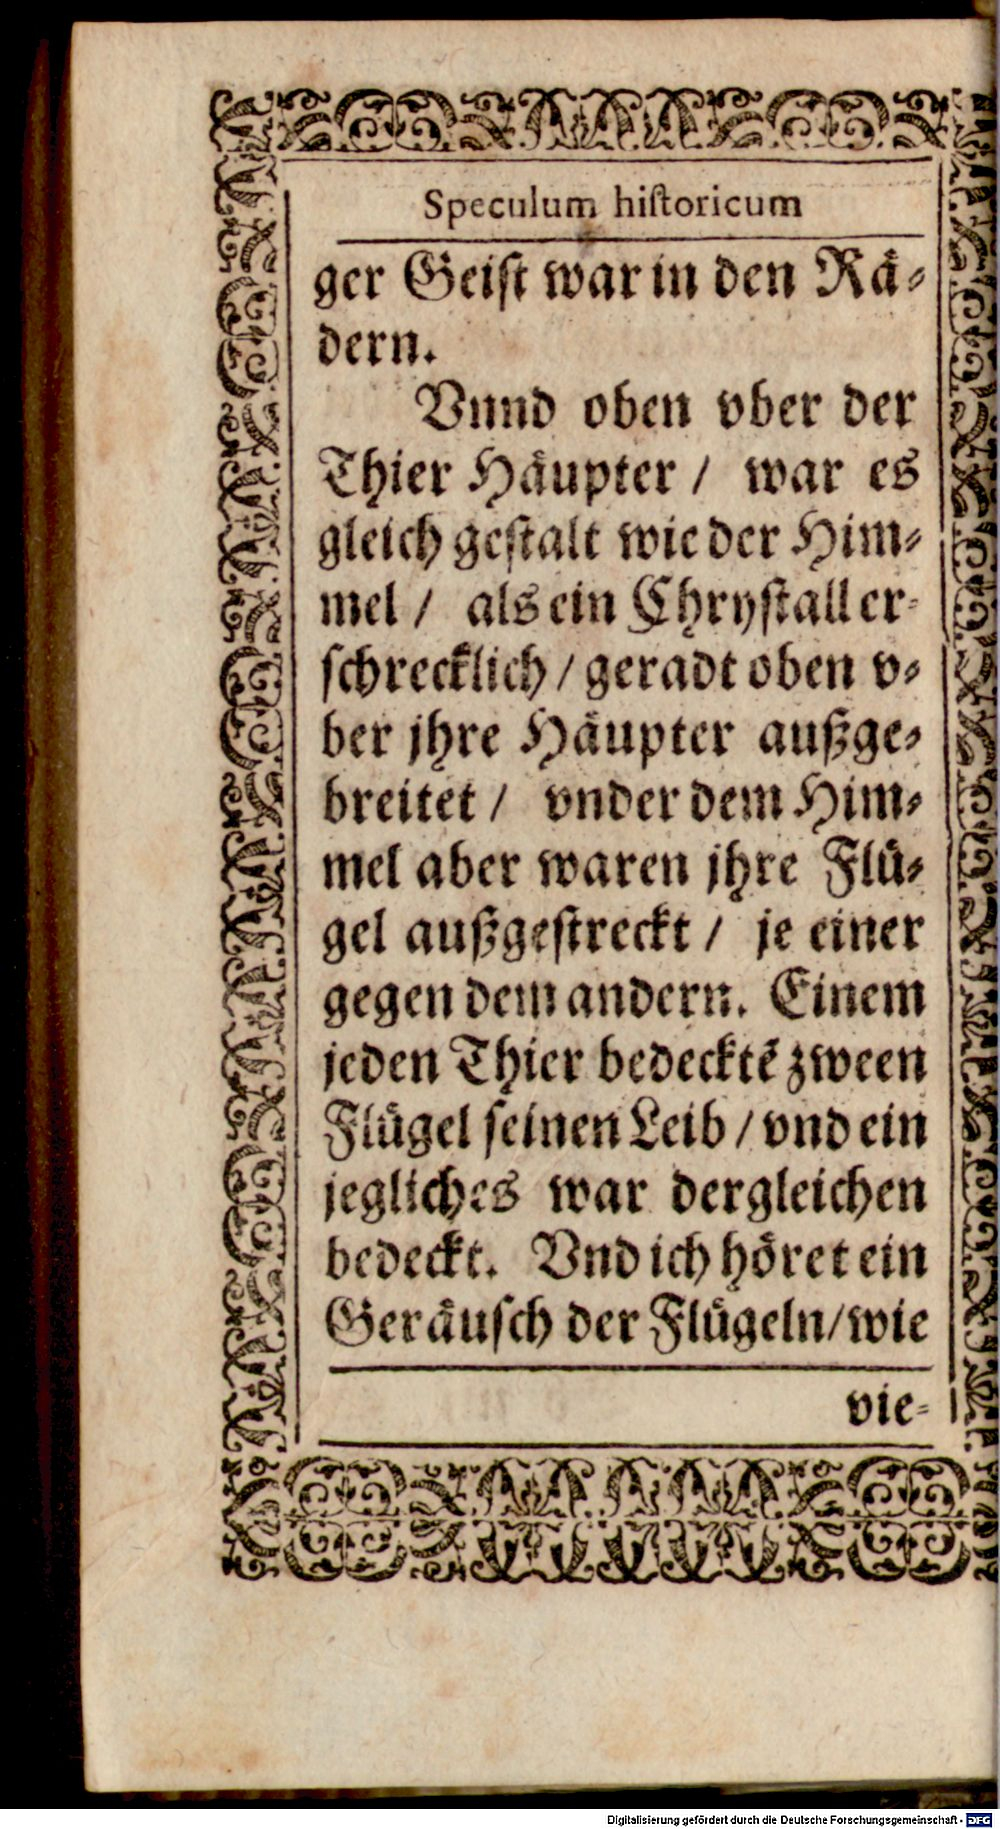 Speculum hiſtoricum
ger Geiſt war in den Rä⸗
dern.
Vnnd oben vber der
Thier Häupter / war es
gleich geſtalt wie der Him⸗
mel / als ein Chryſtall er⸗
ſchrecklich / geradt oben v⸗
ber jhre Häupter außge⸗
breitet / vnder dem Him⸗
mel aber waren jhre Flü⸗
gel außgeſtreckt / je einer
gegen dem andern. Einem
jeden Thier bedecktẽ zween
Flügel ſeinen Leib / vnd ein
jegliches war dergleichen
bedeckt. Vnd ich höret ein
Geräuſch der Flügeln / wie
vie⸗
Digitalisierung gefördert durch die Deutsche Forschungsgemeinschaft - DFG